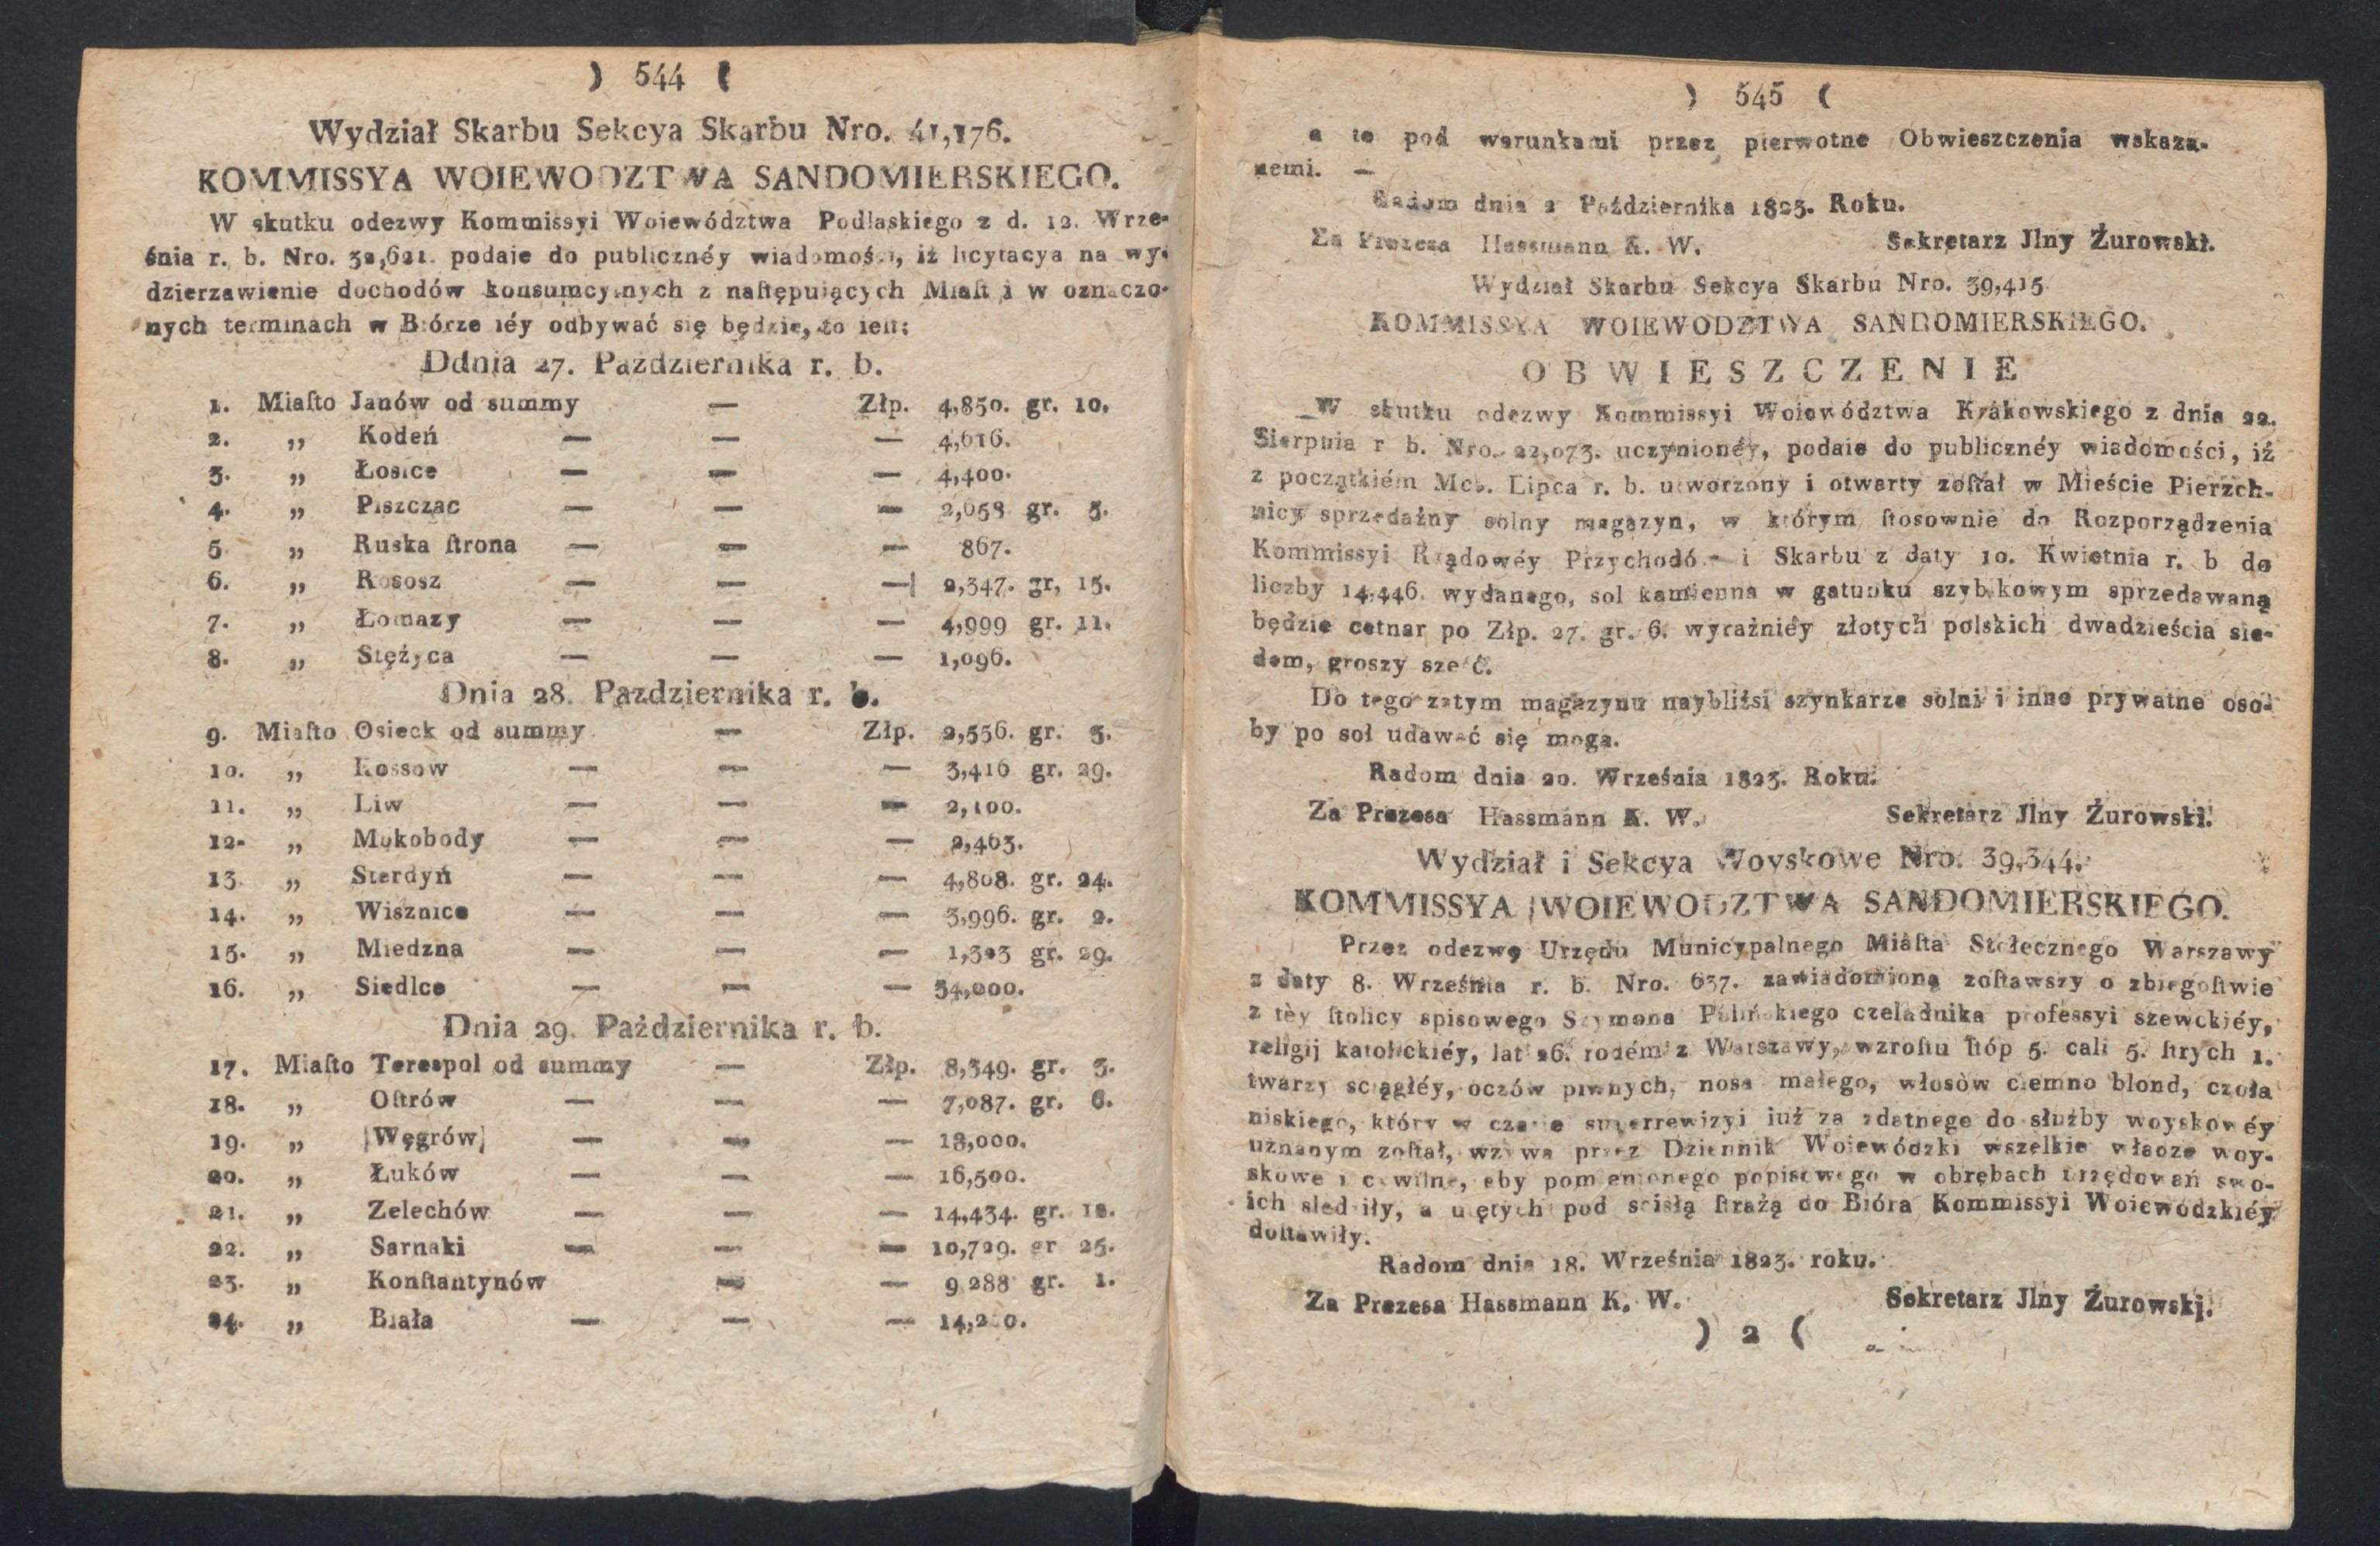 ) 544 (
Wydział Skarbu Sekcya Skarbu Nro. 41,176.
KOMMISSYA WOIEWODZTWA SANDOMIERSKIEGO.
W skutku odezwy Kommissyi Woiewództwa Podlaskiego z d. 12. Wrze-
śnia r. b. Nro. 32,621. podaie do publicznéy wiadomości, iż licytacya na wy-
dzierzawienie dochodów konsumcyinych z naſtępuiących Miaſt i w oznaczo-
nych terminach w Biórze iéy odbywać się będzie, to ieſt:
Ddnia 27. Pazdziernika r. b.
1. Miaſto Janów od summy — Złp. 4,850. gr. 10.
2. „ Kodeń — — — 4,616.
3. „ Łosice — — — 4,400.
4. „ Piszczac — — — 2,058 gr. 3.
5 „ Ruska ſtrona — — — 867.
6. „ Rososz — — — 2,347. gr, 15.
7. „ Łomazy — — — 4,999 gr. 11.
8. „ Stężyca — — — 1,096.
Dnia 28. Pazdziernika r. b.
9. Miaſto Osieck od summy — Złp. 2,556. gr. 3.
10. „ Kossow — — — 3,416 gr. 29.
11. „ Liw — — — 2,100.
12- „ Mokobody — — — 2,463.
13. „ Sterdyń — — — 4,808. gr. 24.
14. „ Wisznice — — — 3,996. gr. 2.
15. „ Miedzna — — — 1,323 gr. 29.
16. „ Siedlce — — — 54,000.
Dnia 29. Października r. b.
17. Miaſto Terespol od summy — Złp. 8,349. gr. 3.
18. „ Oſtrów — — — 7,087. gr. 6.
19. „ Węgrów — — — 13,000.
20. „ Łuków — — — 16,500.
21. „ Zelechów — — — 14,434. gr. 12.
22. „ Sarnaki — — — 10,729. gr 25.
23. „ Konſtantynów — — 9 288 gr. 1.
24. „ Biała — — —
) 545 (
a to pod warunkami przez pierwotne Obwieszczenia wskaza-
nemi. —
Radom dnia 2 Października 1823. Roku.
Za Prezesa Hassmann K. W. Sekretarz Jlny Żurowski.
Wydział Skarbu Sekcya Skarbu Nro. 39,415
KOMMISSYA WOIEWODZTWA SANDOMIERSKIEGO.
OBWIESZCZENIE
W skutku odezwy Kommissyi Woiewództwa Krakowskiego z dnia 22.
Sierpnia r b. Nro. 22,073. uczynionéy, podaie do publicznéy wiadomości, iż
z początkiém Mca. Lipca r. b. utworzony i otwarty zoſtał w Mieście Pierzch-
nicy sprzedażny solny magazyn, w którym ſtosownie do Rozporządzenia
Kommissyi Rządowéy Przychodów i Skarbu z daty 10. Kwietnia r. b do
liczby 14,446. wydanego, sol kamienna w gatunku szybikowym sprzedawaną
będzie cetnar po Złp. 27. gr. 6. wyraźniéy złotych polskich dwadzieścia sie-
dem, groszy sześć.
Do tego zatym magazynu naybliżsi szynkarze solni i inne prywatne oso-
by po sol udawać się mogą.
Radom dnia 20. Września 1823. Roku.
Za Prezesa Hassmann K. W. Sekretarz Jlny Żurowski.
Wydział i Sekcya Woyskowe Nro. 39,344.
KOMMISSYA WOIEWODZTWA SANDOMIERSKIEGO.
Przez odezwę Urzędu Municypalnego Miaſta Stołecznego Warszawy
z daty 8. Września r. b. Nro. 637. zawiadomioną zoſtawszy o zbiegoſtwie
z téy ſtolicy spisowego Szymona Palińskiego czeladnika professyi szewckiéy,
religij katolickiéy, lat 26. rodém z Warszawy, wzroſtu ſtóp 5. cali 5. ſtrych 1.
twarzy sciągłéy, oczów piwnych, nosa małego, włosów ciemno blond, czoła
niskiego, który w czasie superrewizyi iuż za zdatnego do służby woyskowéy
uznanym zoſtał, wzywa przez Dziennik Woiewódzki wszelkie władze woy-
skowe i cywilne, aby pomienionego popisowego w obrębach urzędowań swo-
ich śledziły, a uiętych pod scisłą ſtrażą do Bióra Kommissyi Woiewodzkiéy
doſtawiły.
Radom dnia 18. Września 1823. roku.
Za Prezesa Hassmann K. W. Sekretarz Jlny Żurowski.
) 2 (